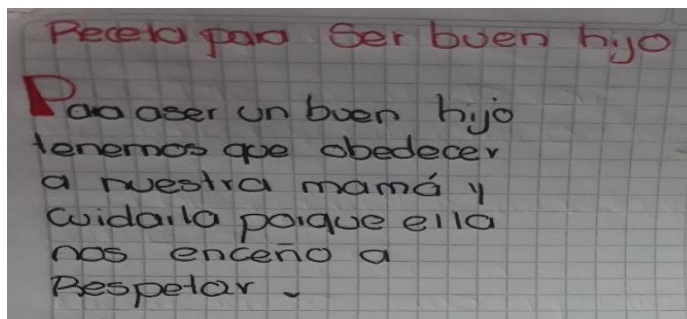 Receta para Ser buen hijo
Para aser un buen hijo
tenemos que obedecer
a nuestra mamá y
cuidarla porque ella
nos enceño a
Respetar.